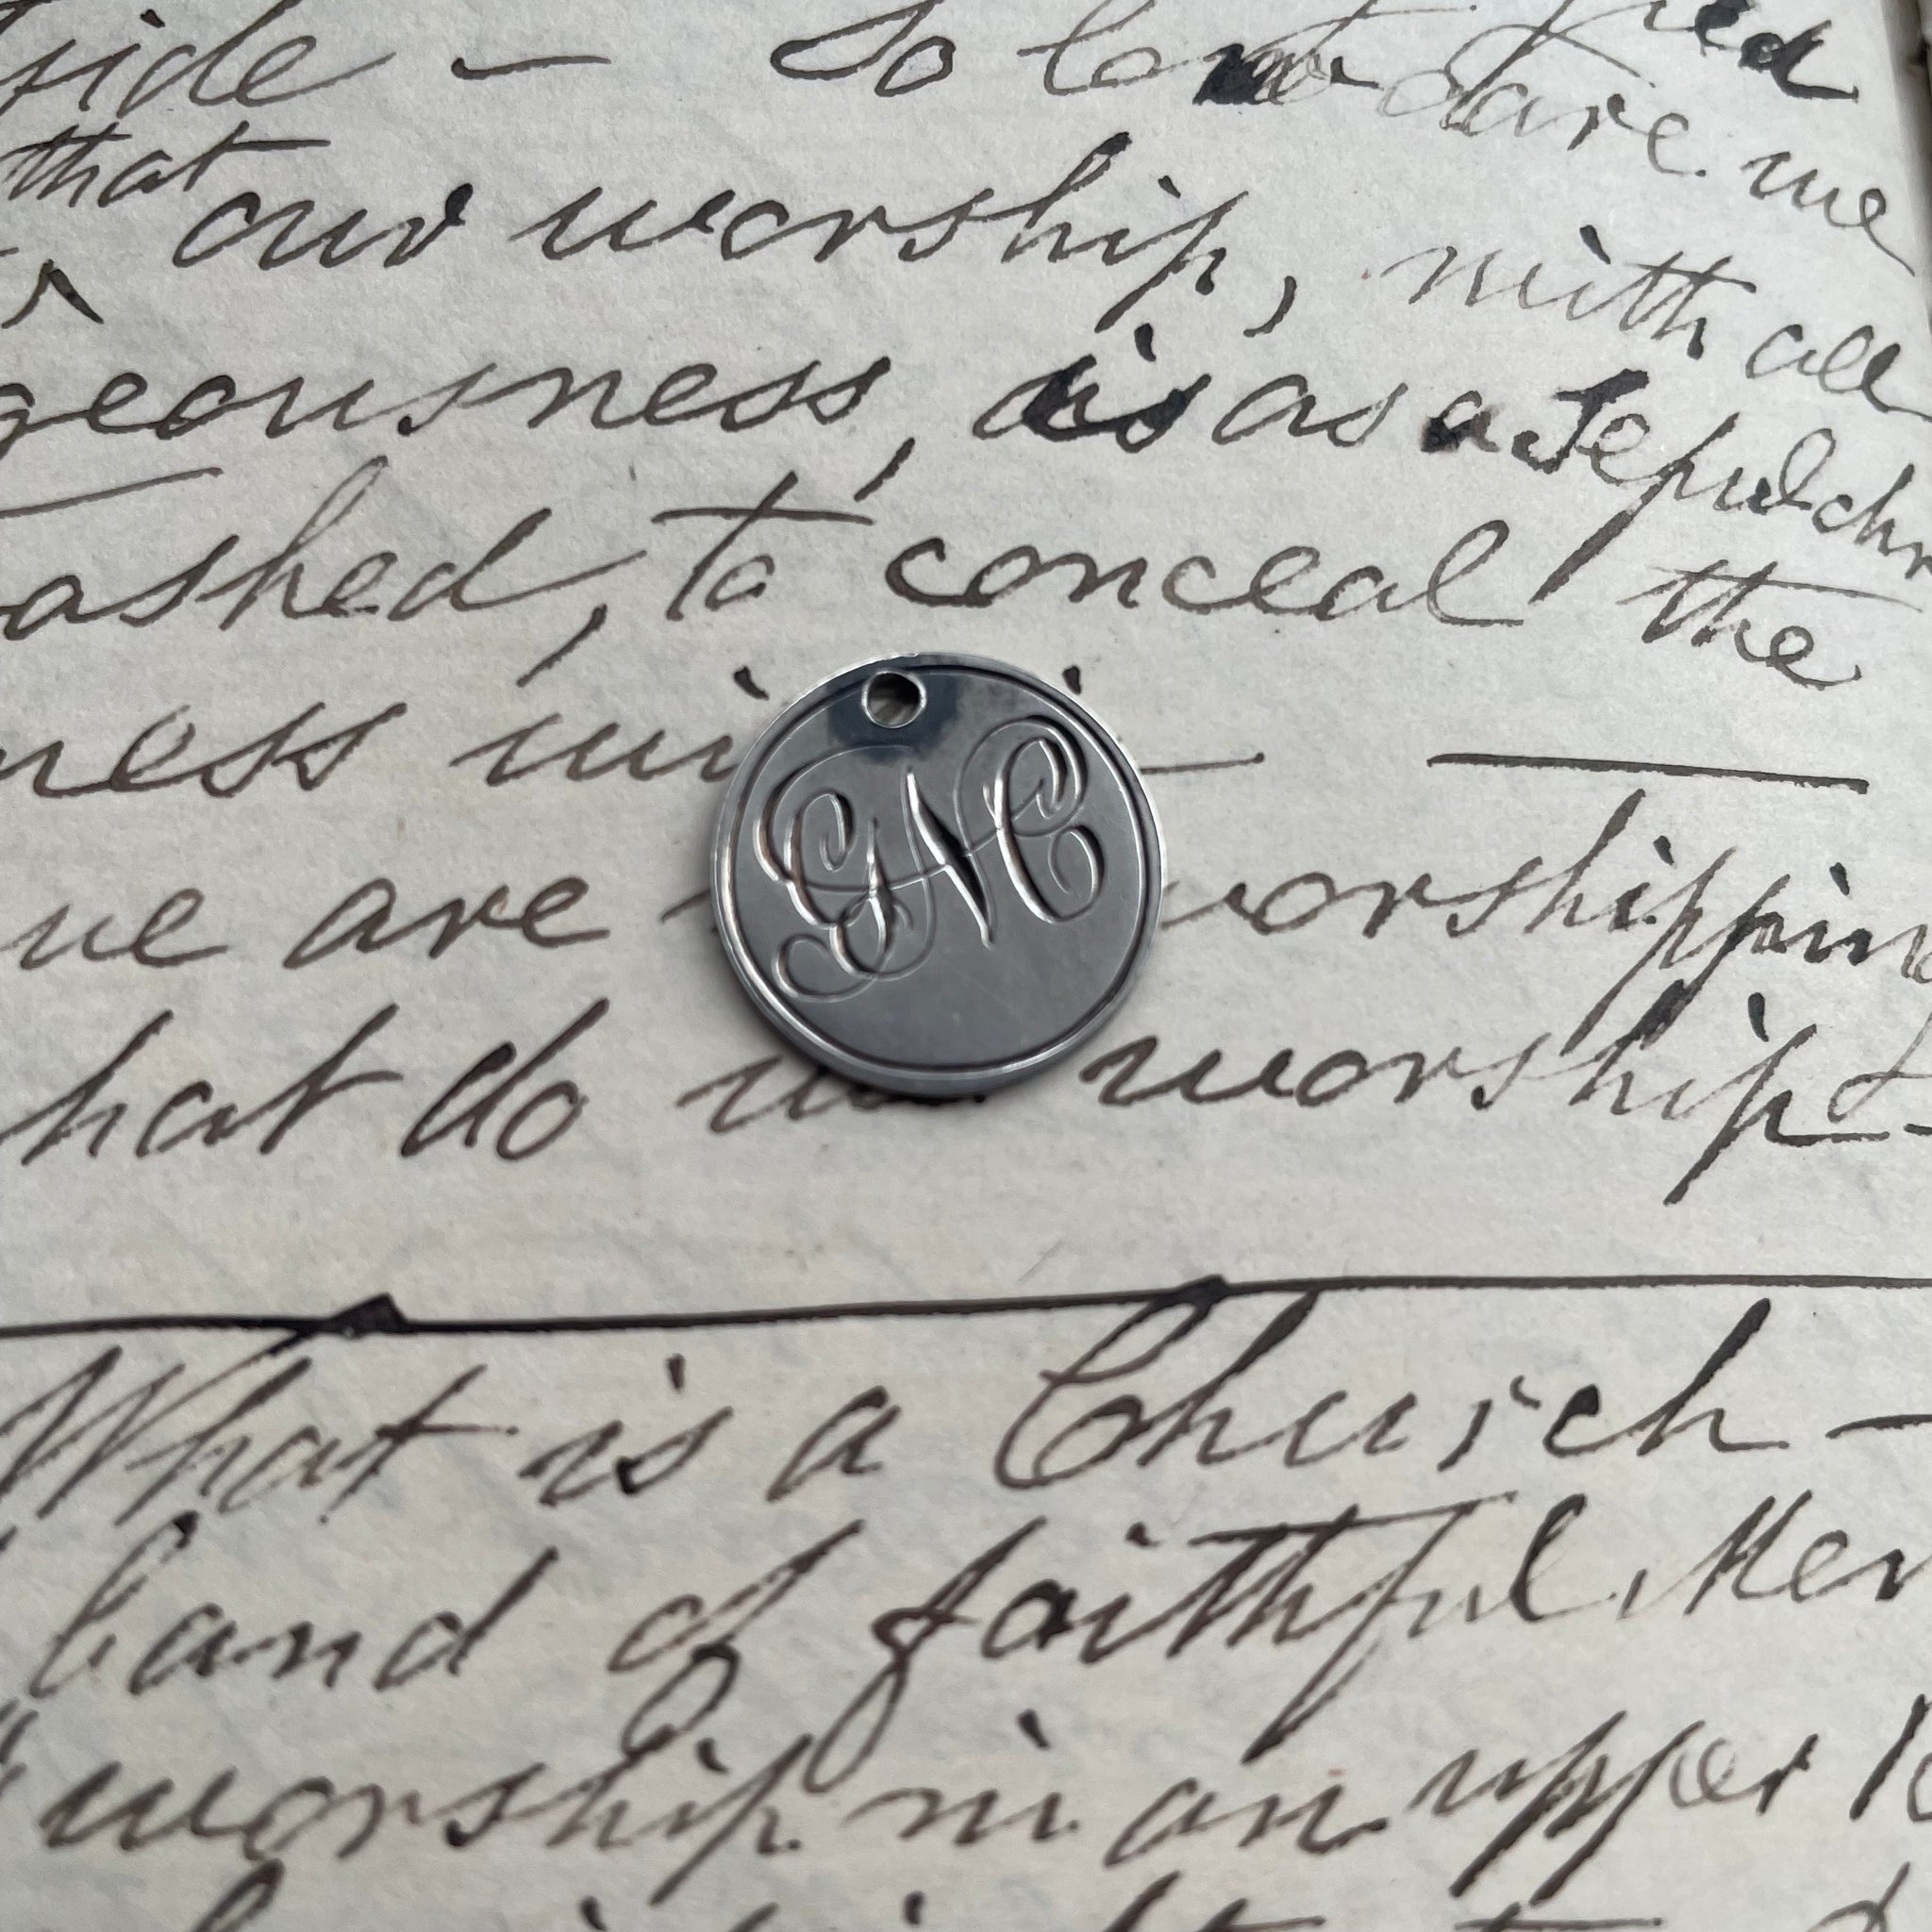 side — So
that
our worship, with all
geousness, is as a Sepulchr
ashed, to conceal the
ness
GNC
we are worshipping
hat do worship
What is a Church —
band of faithful Men
worship in an upper